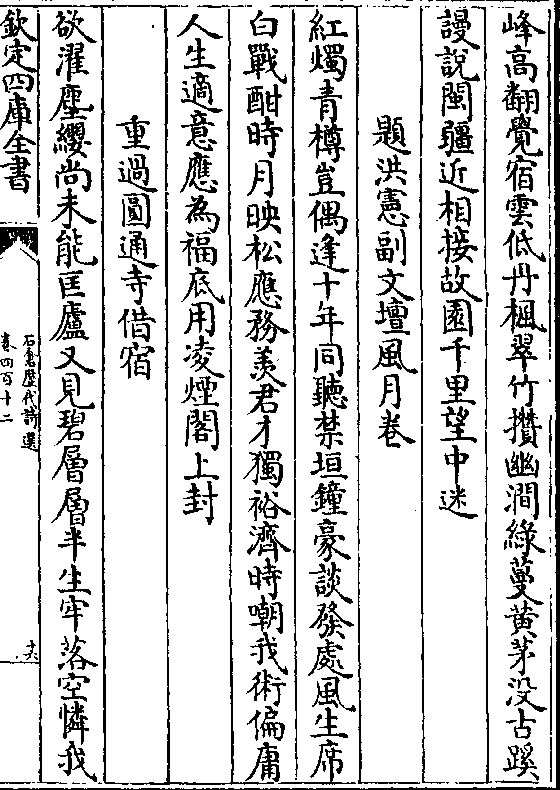 峰高翻覺宿雲低丹楓翠竹攢幽澗綠蔓黄茅没古蹊
謾說閩疆近相接故園千里望中迷
題洪憲副文壇風月卷
紅燭青樽豈偶逢十年同聽禁垣鐘豪談發處風生席
白戰酣時月映松應務羨君才獨裕濟時嘲我術偏庸
人生適意應為福底用凌煙閣上封
重過圓通寺借宿
欲濯塵纓尚未能匡廬又見碧層層半生牢落空憐我
欽定四庫全書
石倉歷代詩選
卷四百十二
十六